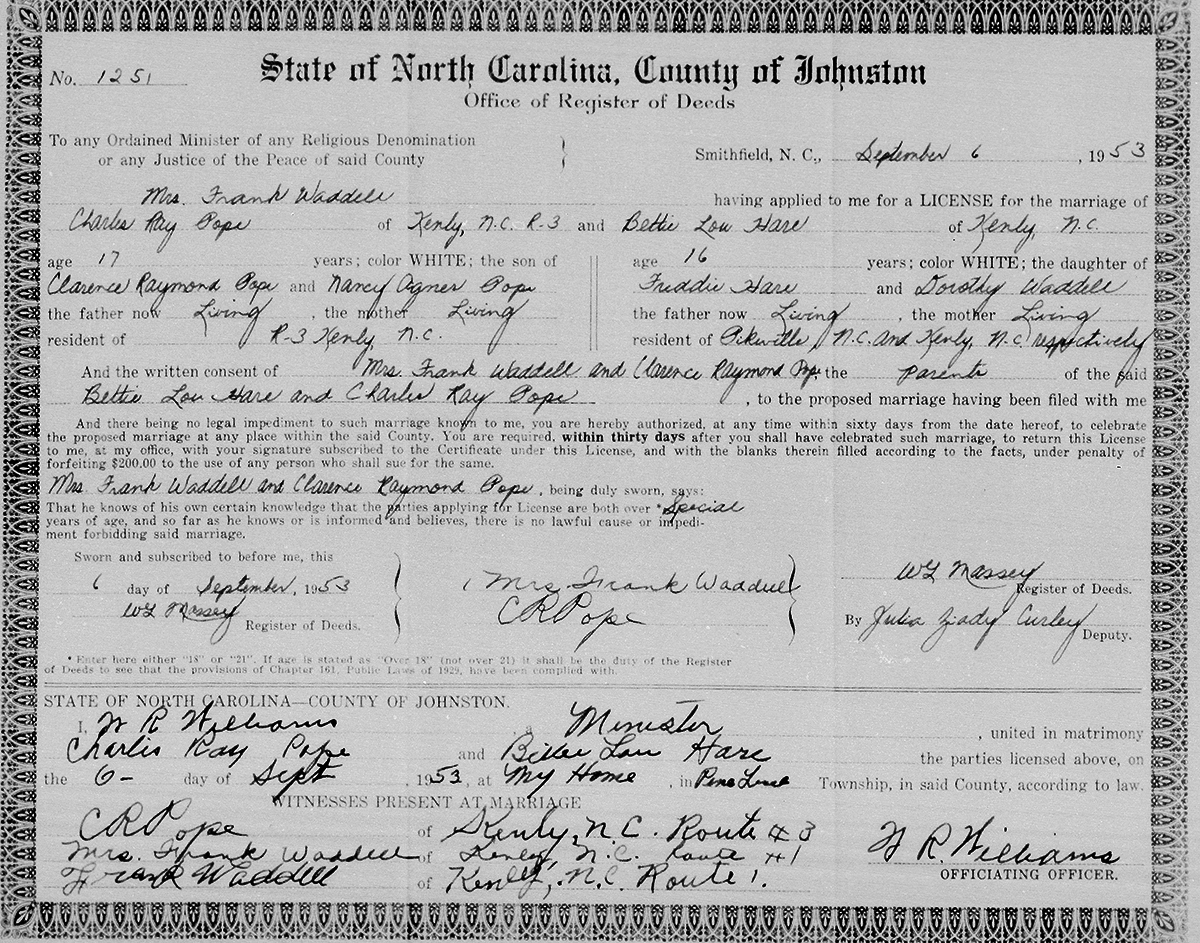 No. 1251
State of North Carolina, County of Johnston
Office of Register of Deeds
To any Ordained Minister of any Religious Denomination
or any Justice of the Peace of said County
Smithfield, N. C., September 6, 1953
Mrs. Frank Waddell having applied to me for a LICENSE for the marriage of
Charles Ray Pope of Kenly, N.C. R-3 and Bettie Lou Hare of Kenly, N.C.
age 17 years; color WHITE; the son of
Clarence Raymond Pope and Nancy Agnes Pope
the father now Living, the mother Living
resident of R-3 Kenly, N.C.
age 16 years; color WHITE; the daughter of
Freddie Hare and Dorothy Waddell
the father now Living, the mother Living
resident of Pikeville, N.C. and Kenly, N.C. respectively
And the written consent of Mrs. Frank Waddell and Clarence Raymond Pope the Parents of the said
Bettie Lou Hare and Charles Ray Pope, to the proposed marriage having been filed with me
And there being no legal impediment to such marriage known to me, you are hereby authorized, at any time within sixty days from the date hereof, to celebrate
the proposed marriage at any place within the said County. You are required, within thirty days after you shall have celebrated such marriage, to return this License
to me, at my office, with your signature subscribed to the Certificate under this License, and with the blanks therein filled according to the facts, under penalty of
forfeiting $200.00 to the use of any person who shall sue for the same.
Mrs. Frank Waddell and Clarence Raymond Pope, being duly sworn, says:
That he knows of his own certain knowledge that the parties applying for License are both over *Special
years of age, and so far as he knows or is informed and believes, there is no lawful cause or impedi-
ment forbidding said marriage.
Sworn and subscribed to before me, this
6 day of September, 1953
W L Massey
Register of Deeds.
Mrs. Frank Waddell
C R Pope
W L Massey
Register of Deeds.
By Julia Curley
Deputy.
* Enter here either "18" or "21". If age is stated as "Over 18" (not over 21) it shall be the duty of the Register
of Deeds to see that the provisions of Chapter 161, Public Laws of 1929, have been complied with.
STATE OF NORTH CAROLINA—COUNTY OF JOHNSTON.
I, W R Williams, a Minister, united in matrimony
Charlis Ray Pope and Lou Hare the parties licensed above, on
the 6- day of Sept, 1953, at My Home, in Township, in said County, according to law.
WITNESSES PRESENT AT MARRIAGE
C R Pope of Kenly, N.C. Route # 3
Mrs. Frank Waddell of Kenly, N.C. Route #1
Frank Waddell of Kenly, N.C. Route 1.
W R. Williams
OFFICIATING OFFICER.